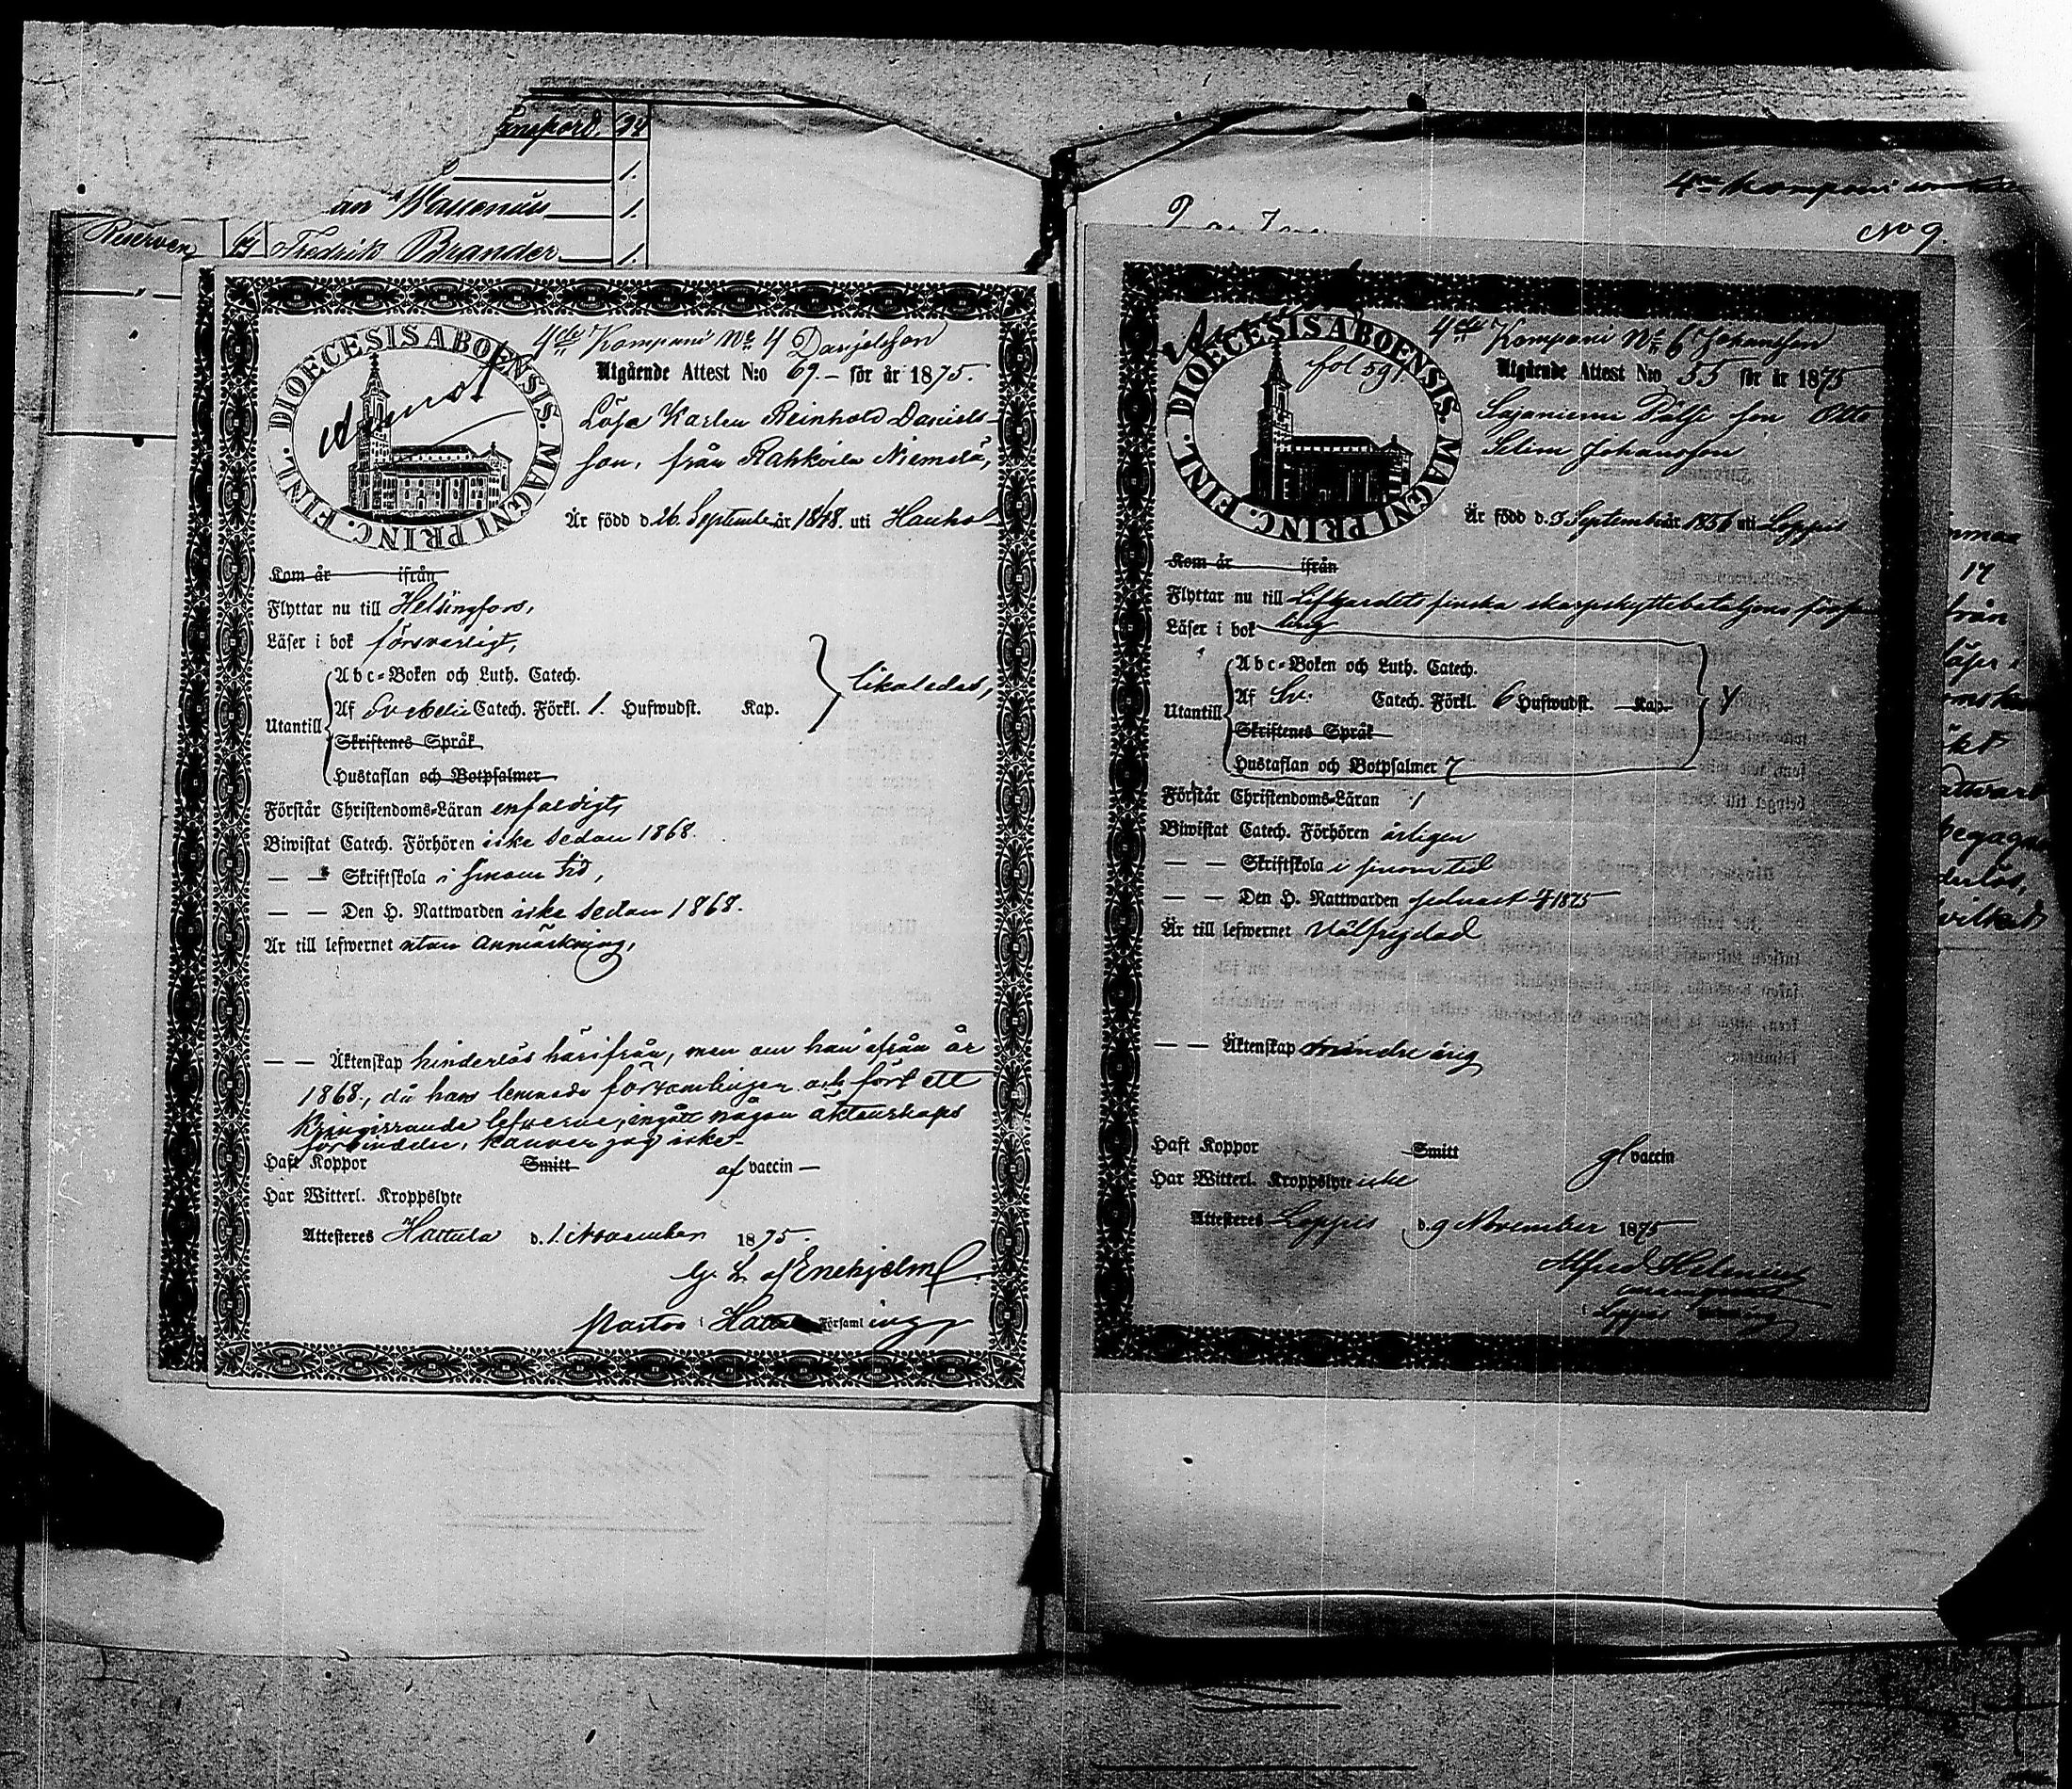 1.
Wassenius 1.
Reserven Fredrik Brander 1.
DIOECESIS ABOENSIS. MAGNI PRINC. FINL.
4de Kompani No 4 Danjelsson
Utgående Attest N:o 69.– för år 1875.
Löse Karlen Reinhold Daniels-
son, från Rahkoila Niemelä,
Är född d. 26 September år 1848. uti Hauho
Kom år ifrån
Flyttar nu till Helsingfors,
Läser i bok försvarligt,
Abc-Boken och Luth. Catech.
Utantill Af Svebelii Catech. Förkl. 1. Hufwudst. Kap. likaledes,
Skriftenes Språk
Hustaflan och Botpsalmer
Förstår Christendoms-Läran enfaldigt,
Biwistat Catech. Förhören icke sedan 1868.
— — Skriftskola i sinom tid,
— — Den H. Nattwarden icke sedan 1868.
Är till lefwernet utan anmärkning,
— — Äktenskap hinderlös härifrån, men om han ifrån år
1868, då han lemnade församlingen och fört ett
kringirrande lefverne, ingått någon äktenskaps
förbindelse, känner jag icke.
Haft Koppor Smitt af vaccin —
Har Witterl. Kroppslyte
Attesteras Hattula d. 1. November 1875.
G. L. af Enehjelm
Pastor i Hattula Församling
4de Kompani
No 9.
4de Kompani No 6 Johansson
DIOECESIS ABOENSIS. MAGNI PRINC. FINL.
fol 591.
Utgående Attest N:o 55 för år 1875
Sajaniemi Otto
Selim Johansson
Är född d. 3 September år 1856 uti Loppis
Kom år ifrån
Flyttar nu till Lifgardets finska skarpskyttebataljons försam
Läser i bok ling
Abc-Boken och Luth. Catech.
Utantill Af Sv: Catech. Förkl. 6 Hufwudst. Kap.
Skriftenes Språk
Hustaflan och Botpsalmer 7
Förstår Christendoms-Läran
Biwistat Catech. Förhören årligen
— — Skriftskola i sinom tid
— — Den H. Nattwarden senast 1875
Är till lefwernet välfrejdad
— — Äktenskap minderårig
Haft Koppor Smitt vaccin
Har Witterl. Kroppslyte icke
Attesteras Loppis d. 9 November 1875
Alfred Helenius
i Loppis
17
från